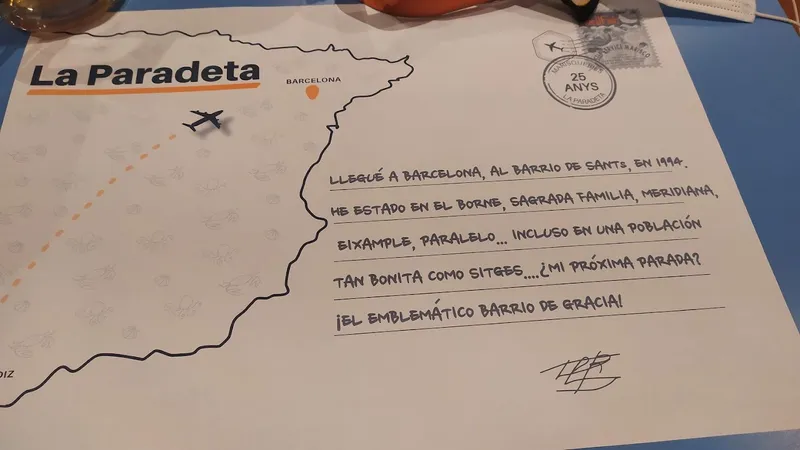 La Paradeta
BARCELONA
MARISQUERIES
25
ANYS
LA PARADETA
LLEGUÉ A BARCELONA, AL BARRIO DE SANTS, EN 1994.
HE ESTADO EN EL BORNE, SAGRADA FAMILIA, MERIDIANA,
EIXAMPLE, PARALELO... INCLUSO EN UNA POBLACIÓN
TAN BONITA COMO SITGES....¿MI PRÓXIMA PARADA?
¡EL EMBLEMÁTICO BARRIO DE GRACIA!
DIZ